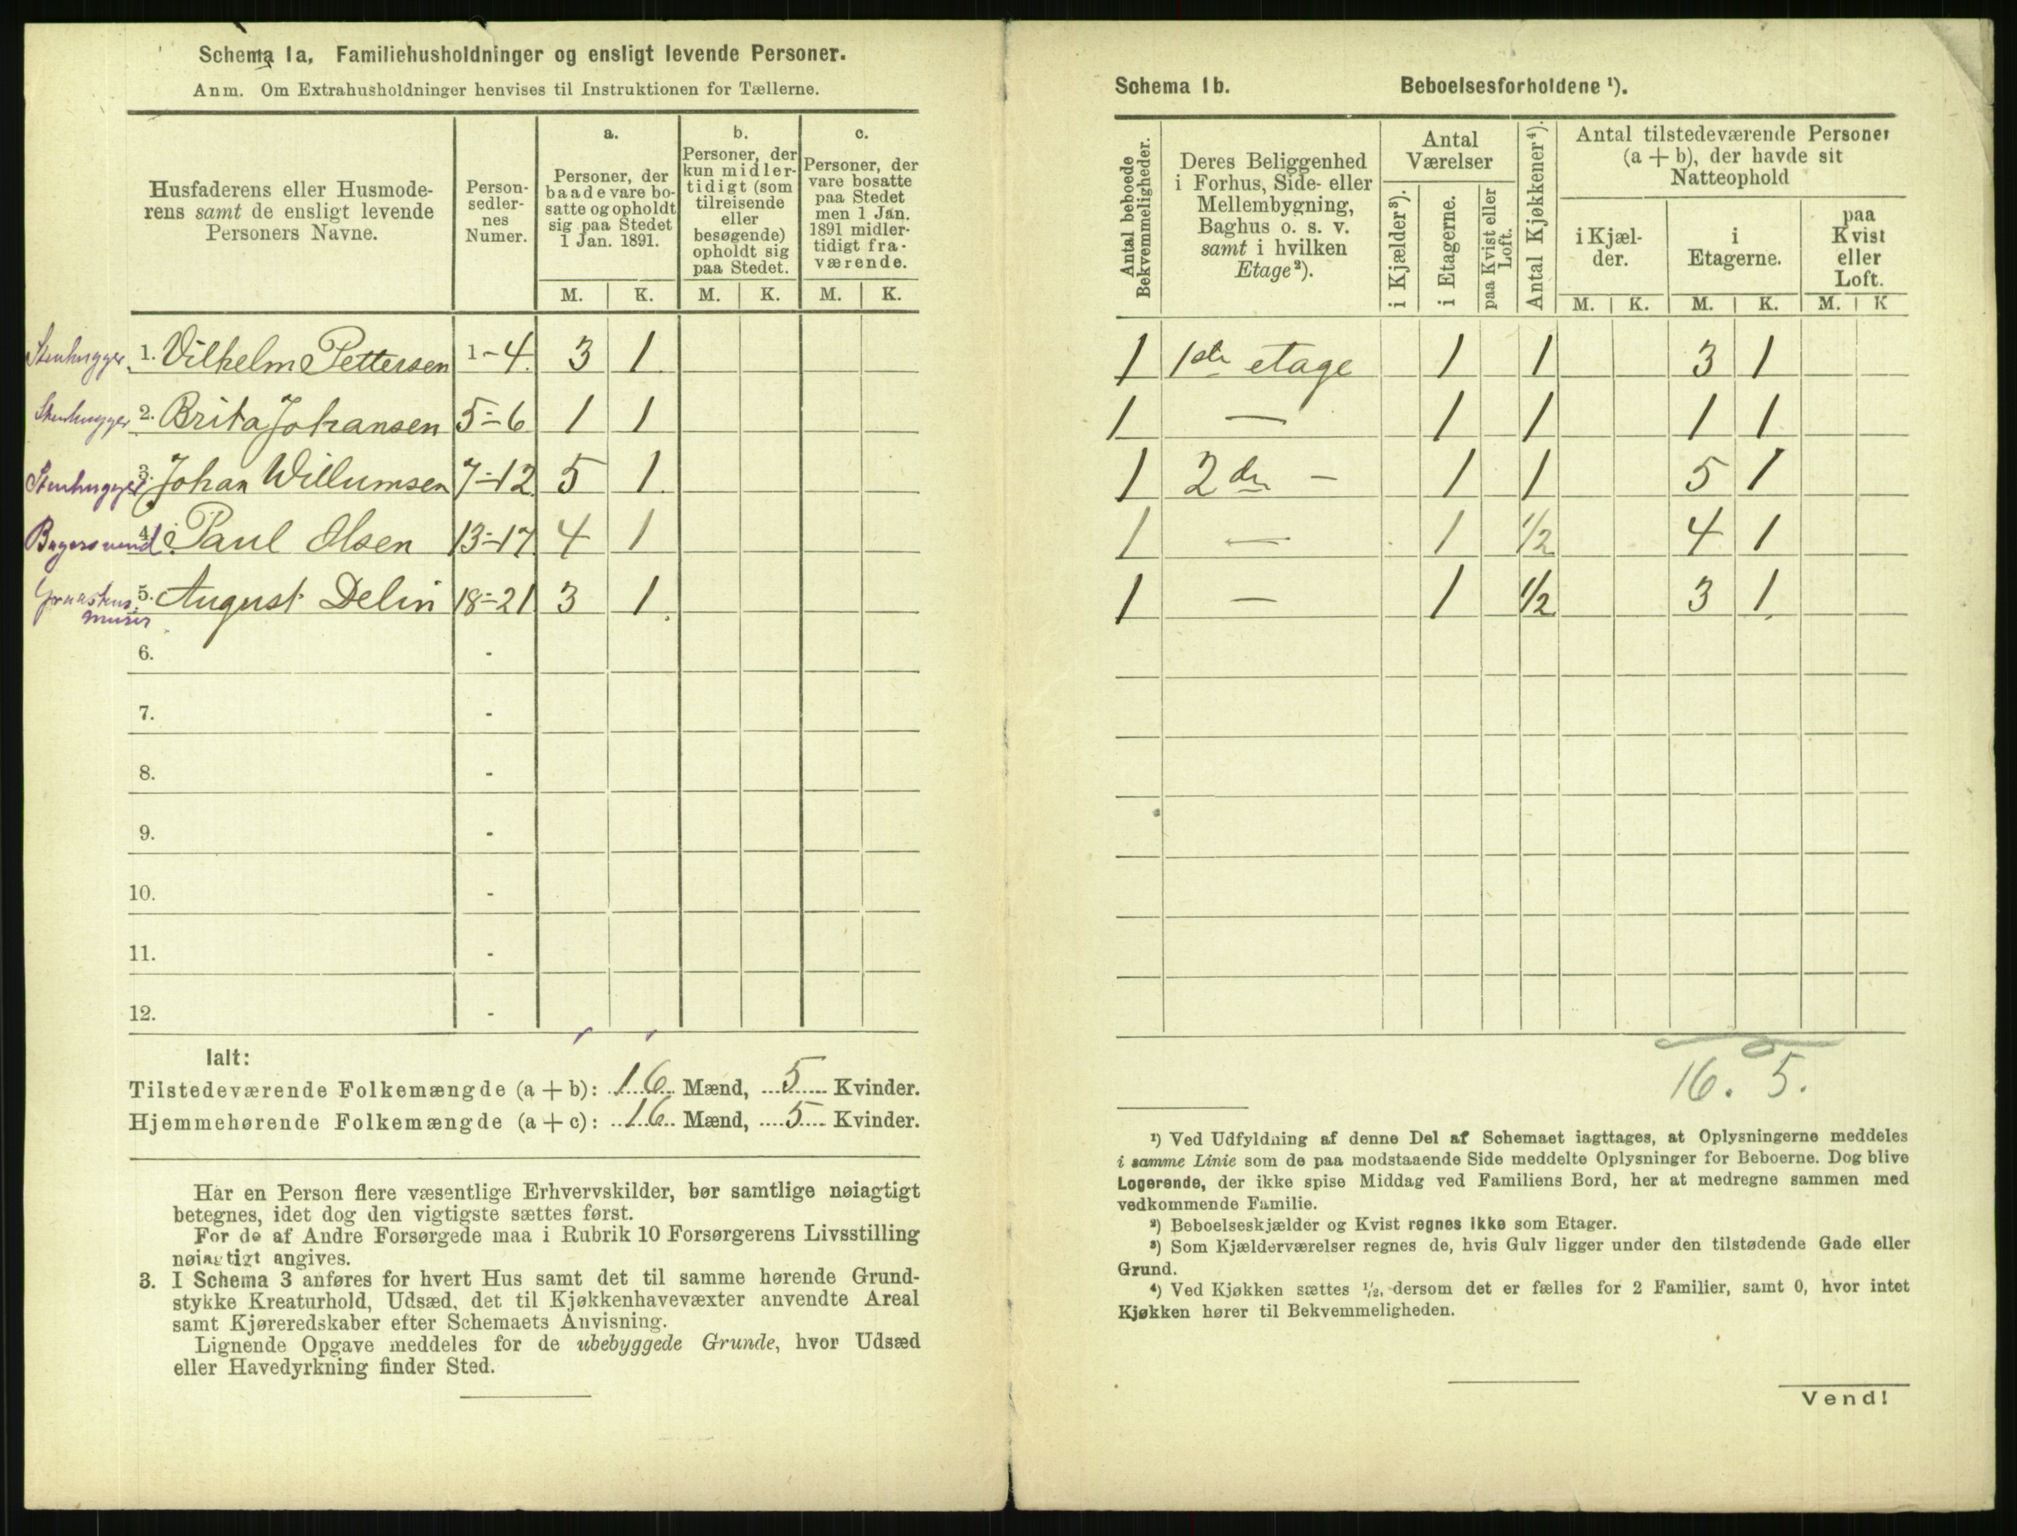 Schema 1a, Familiehusholdninger og ensligt levende Personer.
Anm. Om Extrahusholdninger henvises til Instruktionen for Tællerne.
Husfaderens eller Husmode-
rens samt de ensligt levende
Personers Navne.
Person-
sedler-
nes
Numer.
a.
Personer, der
baade vare bo-
satte og opholdt
sig paa Stedet
1 Jan. 1891.
b.
Personer, der
kun midler-
tidigt (som
tilreisende
eller
besøgende)
opholdt sig
paa Stedet.
c.
Personer, der
vare bosatte
paa Stedet
men 1 Jan.
1891 midler-
tidigt fra-
værende.
M. K. M. K. M. K.
Stenhugger 1. Vilhelm Pettersen 1-4. 3 1
Stenhugger 2. Brita Johansen 5-6 1 1
Stenhugger 3. Johan Willumsen 7-12 5 1
Bagersvend 4. Paul Olsen 13-17 4 1
5. August Delin 18-21 3 1
murer
6. -
7. -
8. -
9. -
10. -
11. -
12. -
Ialt:
Tilstedeværende Folkemængde (a + b): 16 Mænd, 5 Kvinder.
Hjemmehørende Folkemængde (a + c): 16 Mænd, 5 Kvinder.
Har en Person flere væsentlige Erhvervskilder, bør samtlige nøiagtigt
betegnes, idet dog den vigtigste sættes først.
For de af Andre Forsørgede maa i Rubrik 10 Forsørgerens Livsstilling
nøiagtigt angives.
3. I Schema 3 anføres for hvert Hus samt det til samme hørende Grund-
stykke Kreaturhold, Udsæd, det til Kjøkkenhavevæxter anvendte Areal
samt Kjøreredskaber efter Schemaets Anvisning.
Lignende Opgave meddeles for de ubebyggede Grunde, hvor Udsæd
eller Havedyrkning finder Sted.
Schema 1b. Beboelsesforholdene ¹).
Antal beboede
Bekvemmeligheder.
Deres Beliggenhed
i Forhus, Side- eller
Mellembygning,
Baghus o. s. v.
samt i hvilken
Etage²).
Antal
Værelser
i Kjælder³).
i Etagerne.
paa Kvist eller
Loft.
Antal Kjøkkener⁴).
Antal tilstedeværende Personer
(a + b), der havde sit
Natteophold
i Kjæl-
der.
i
Etagerne.
paa
Kvist
eller
Loft.
M. K. M. K. M. K
1 1ste etage 1 1 3 1
1 — 1 1 1 1
1 2den — 1 1 5 1
1 — 1 1/2 4 1
1 — 1 1/2 3 1
16. 5.
¹) Ved Udfyldning af denne Del af Schemaet iagttages, at Oplysningerne meddeles
i samme Linie som de paa modstaaende Side meddelte Oplysninger for Beboerne. Dog blive
Logerende, der ikke spise Middag ved Familiens Bord, her at medregne sammen med
vedkommende Familie.
²) Beboelseskjælder og Kvist regnes ikke som Etager.
³) Som Kjælderværelser regnes de, hvis Gulv ligger under den tilstødende Gade eller
Grund.
⁴) Ved Kjøkken sættes 1/2, dersom det er fælles for 2 Familier, samt 0, hvor intet
Kjøkken hører til Bekvemmeligheden.
Vend!